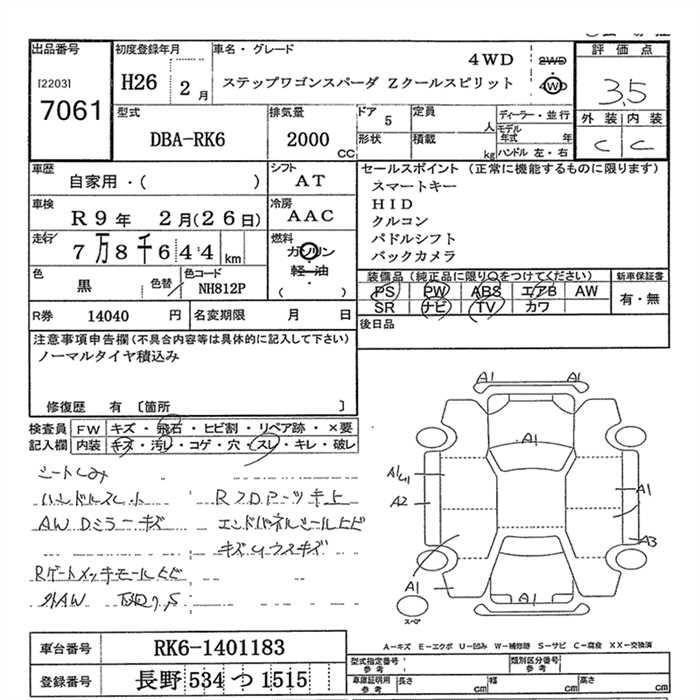 出品番号 初度登録年月 車名・グレード 4WD 2WD 評価点
[2203] H26 2月 ステップワゴンスパーダ Zクールスピリット 4WD 3.5
7061
型式 排気量 ドア 5 定員 人 ディーラー・並行 外装 内装
DBA-RK6 2000 CC 形状 積載 kg モデル年式 年 C C
ハンドル 左・右
車歴 シフト セールスポイント (正常に機能するものに限ります)
自家用・( ) AT スマートキー
車検 冷房 HID
R9年 2月(26日) AAC クルコン
走行 燃料 パドルシフト
7万8千644km ガソリン バックカメラ
軽油
色 色替 色コード 装備品(純正品に限り○をつけてください) 新車保証書
黒 NH812P ( ) PS PW ABS エアB AW 有・無
SR ナビ TV カワ
R券 14040 円 名変期限 月 日 後日品
注意事項申告欄(不具合内容等は具体的に記入して下さい)
ノーマルタイヤ積込み
修復歴 有 [箇所 ]
検査員 FW キズ・飛石・ヒビ割・リペア跡・×要
記入欄 内装 キズ・汚レ・コゲ・穴・スレ・キレ・破レ
シートしみ
ハンドルスレ
AW Dミラーキズ
エンドパネルシールヒビ
Rゲートメッキモールヒビ
A1 A1
A1
A1
A2
A1
A3
A1
A1
スペア
車台番号 RK6-1401183
登録番号 長野 534 つ 1515
A-キズ E-エクボ U-凹み W-補修跡 S-サビ C-腐食 XX-交換済
型式指定番号 参考 類別区分番号 参考
車庫証明用 参考 長さ cm 幅 cm 高さ cm